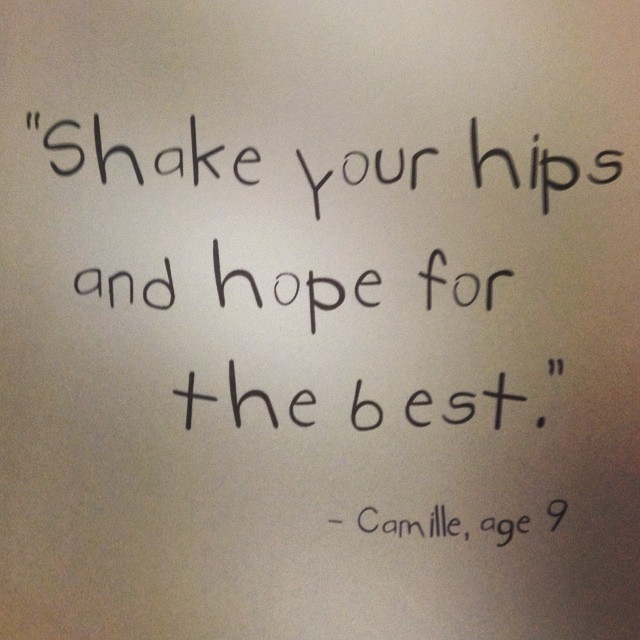 "Shake your hips
and hope for
the best."
- Camille, age 9